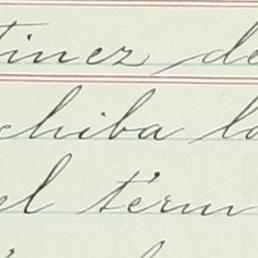 tinez de
chiba lo
el térm